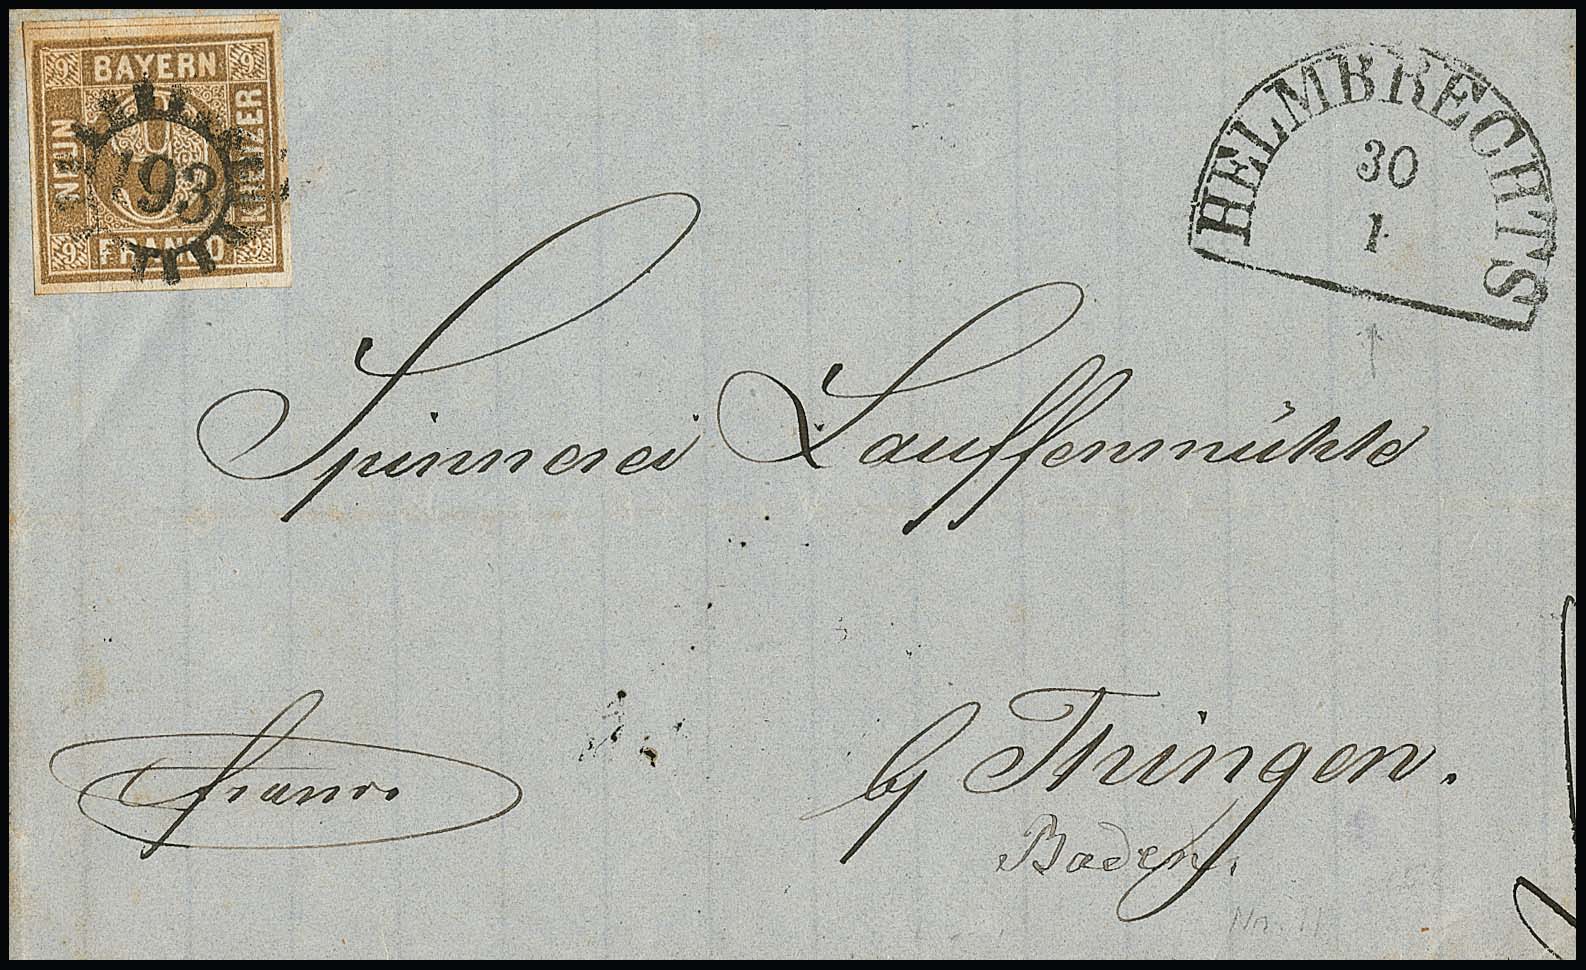 9 BAYERN 9
NEUN
KREUZER
9 FRANCO 9
193
HELMBRECHTS
30
1
Spinnerei Lauffenmühle
franco
by Thingen.
Baden.
No. 11